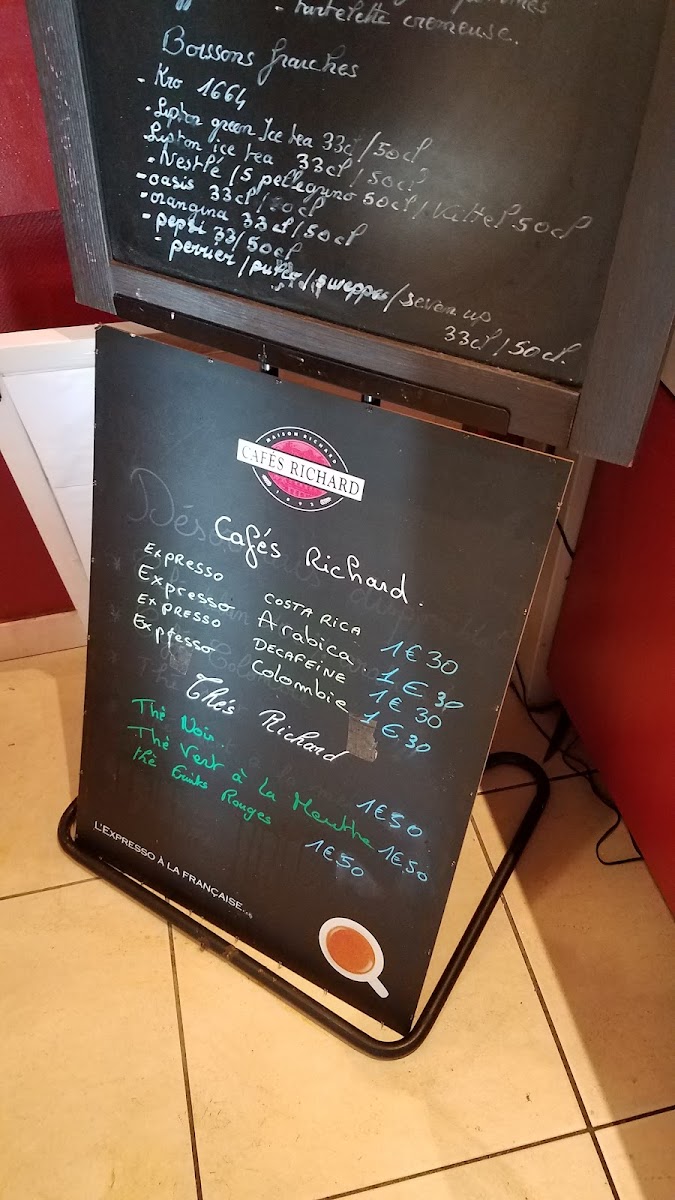 tartelette cremeuse.
Boissons fraiches
- Kro 1664
- Lipton green Ice tea 33cl/50cl
Lipton ice tea 33cl/50cl
- Nestlé/S pellegrino 50cl/Vittel 50cl
- oasis 33cl/50cl
- orangina 33cl/50cl
- pepsi 33/50cl
- perrier/ /sweppes/seven up
33cl/50cl.
MAISON RICHARD
CAFÉS RICHARD
1892
Cafés Richard.
EXPRESSO COSTA RICA 1€30
Expresso Arabica 1€30
EXPRESSO DECAFEINE 1€30
Expresso Colombie 1€30
Thés Richard
Thé Noir. 1€50
Thé Vert à la Menthe 1€50
thé Fruits Rouges 1€50
L'EXPRESSO À LA FRANÇAISE...